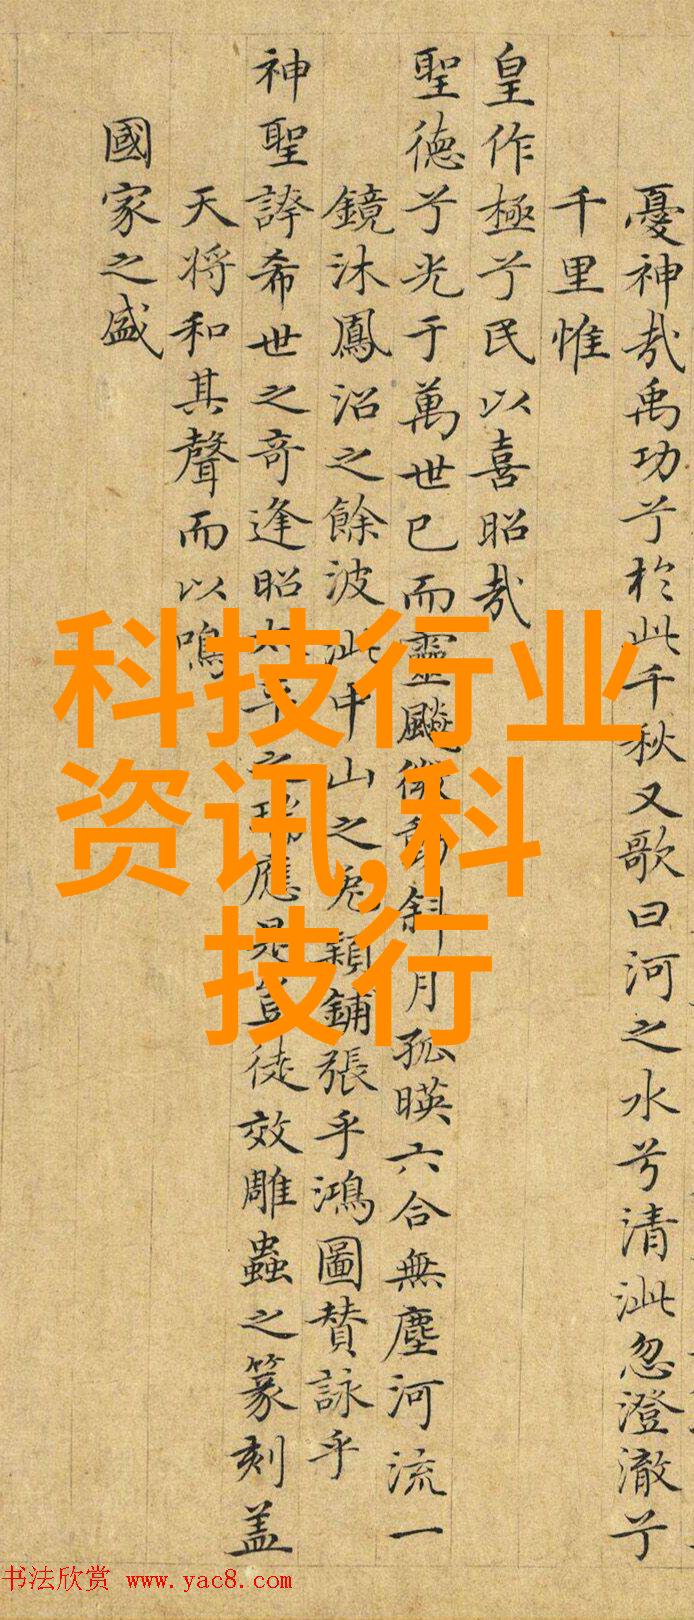 憂神哉禹功兮於此千秋又歌曰河之水兮清泚忽澄澈兮
千里惟
皇作極兮民以喜昭哉
聖德兮光于萬世已而靈飈微動斜月孤暎六合無塵河流一
鏡沐鳳沼之餘波泚中山之兔穎鋪張乎鴻圖賛詠乎
神聖誇希世之奇逢昭太平之瑞應是豈徒效雕蟲之篆刻盖
天将和其聲而以鳴
國家之盛
科技行业
资讯,科
技行
书法欣赏 www.yac8.com